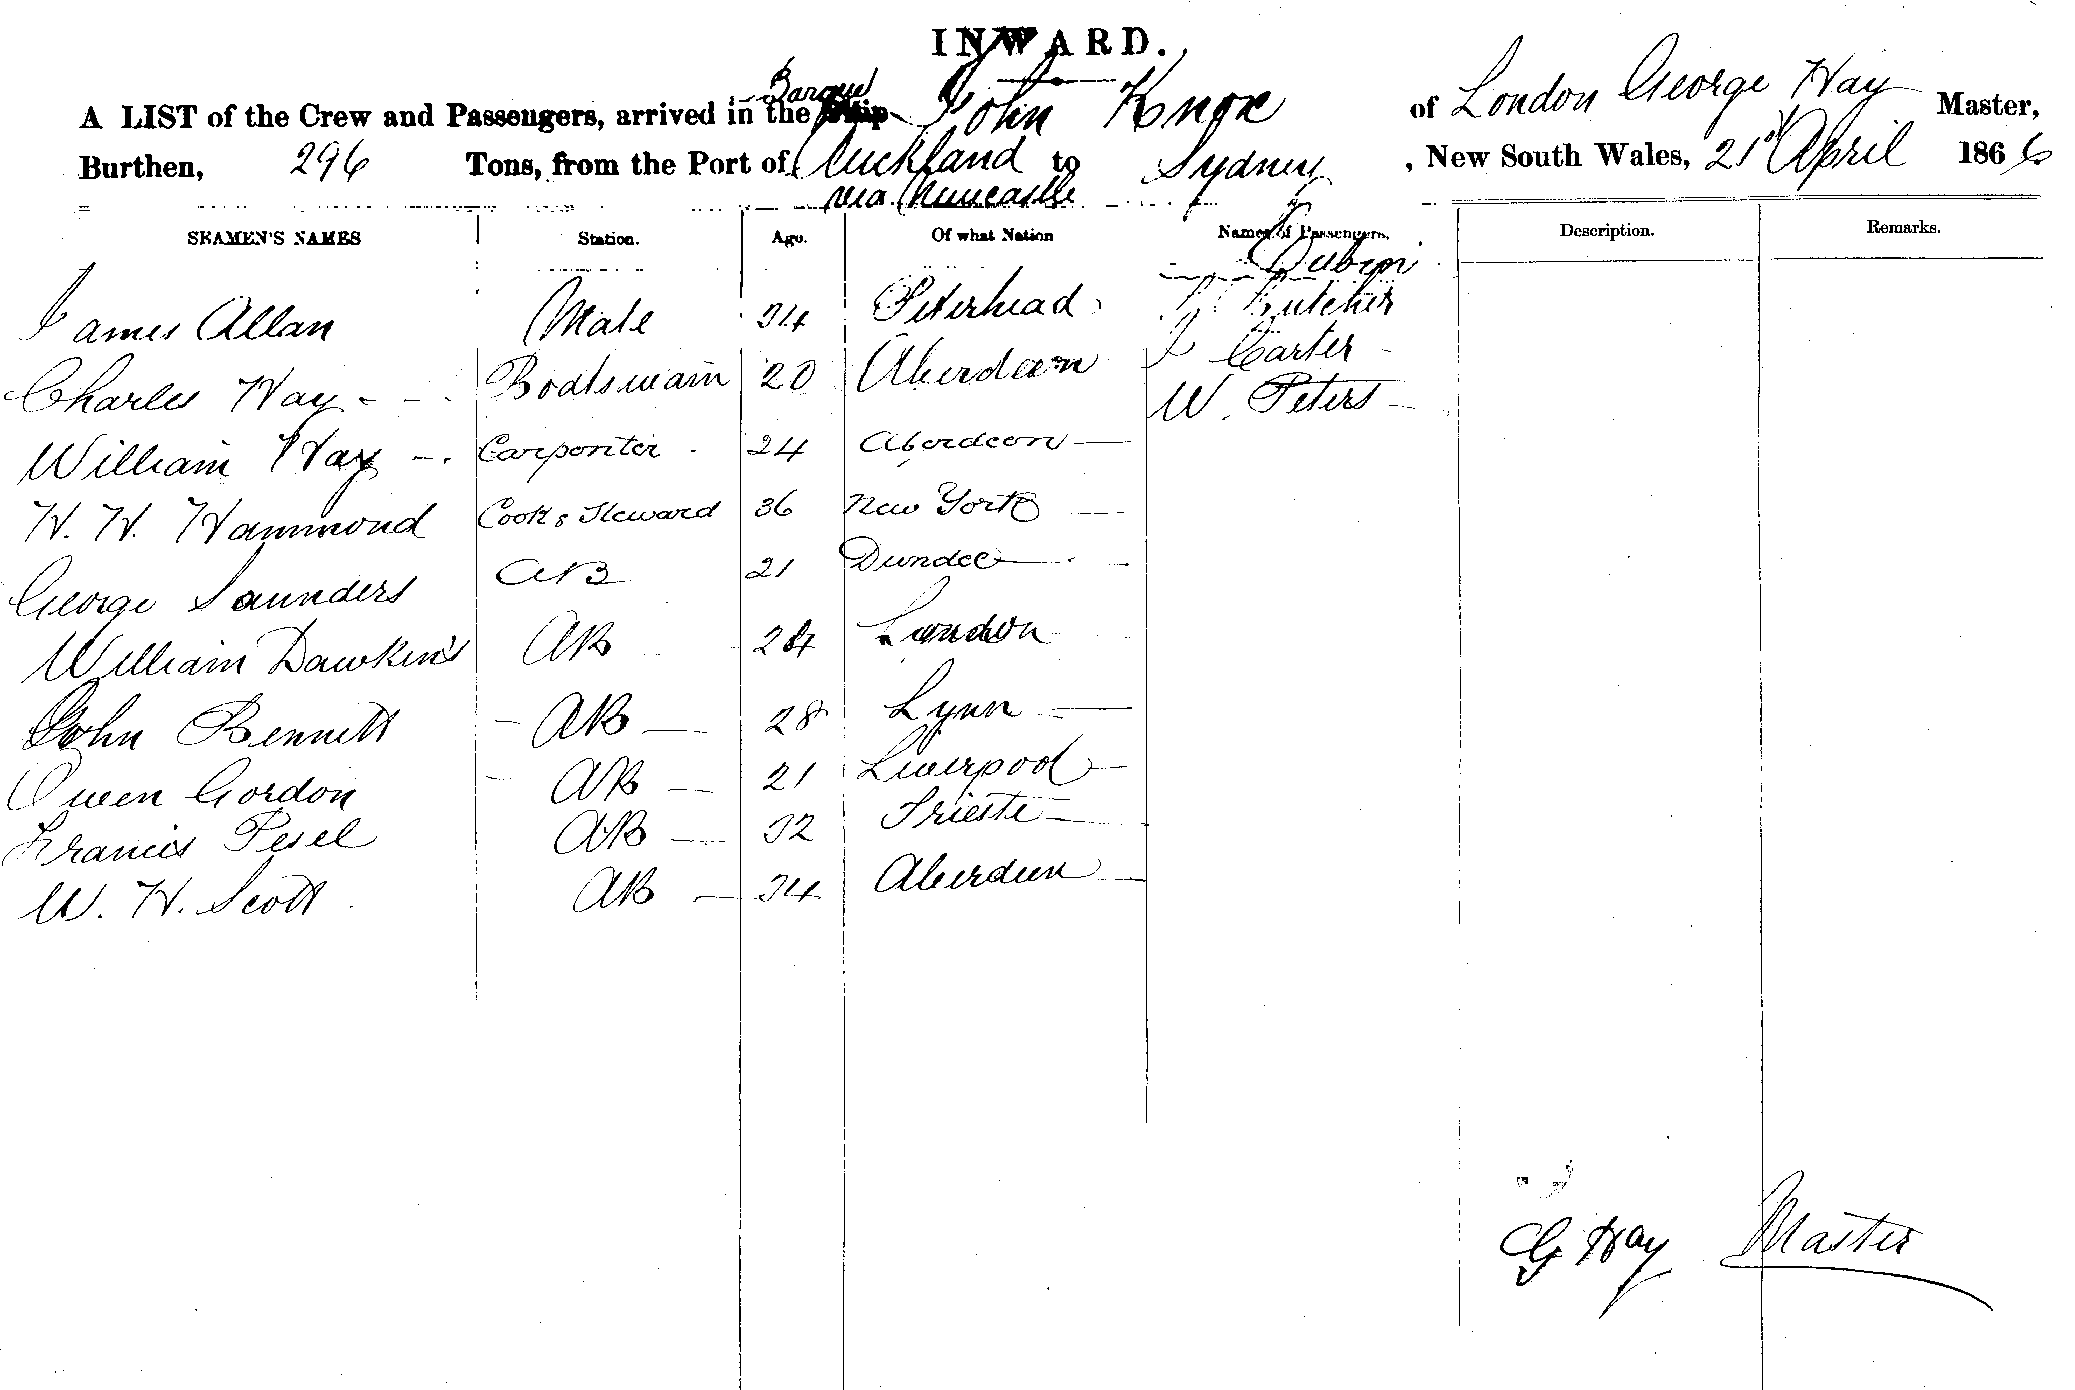 INWARD.
A LIST of the Crew and Passengers, arrived in the Barque John Knox of London George Hay Master,
Burthen, 296 Tons, from the Port of Auckland to Sydney, New South Wales, 21st April 1866
via Newcastle
SEAMEN'S NAMES Station. Age. Of what Nation Names of Passengers. Description. Remarks.
James Allan Mate 34 Peterhead Butcher
Charles Hay Boatswain 20 Aberdeen J Carter
William Hay Carpenter 24 Aberdeen W. Peters
H. H. Hammond Cook & Steward 36 New York
George Saunders AB 21 Dundee
William Dawkins AB 24 London
John Bennett AB 28 Lynn
Owen Gordon AB 21 Liverpool
Francis Pesel AB 32 Trieste
W. H. Scott AB 34 Aberdeen
G Hay Master